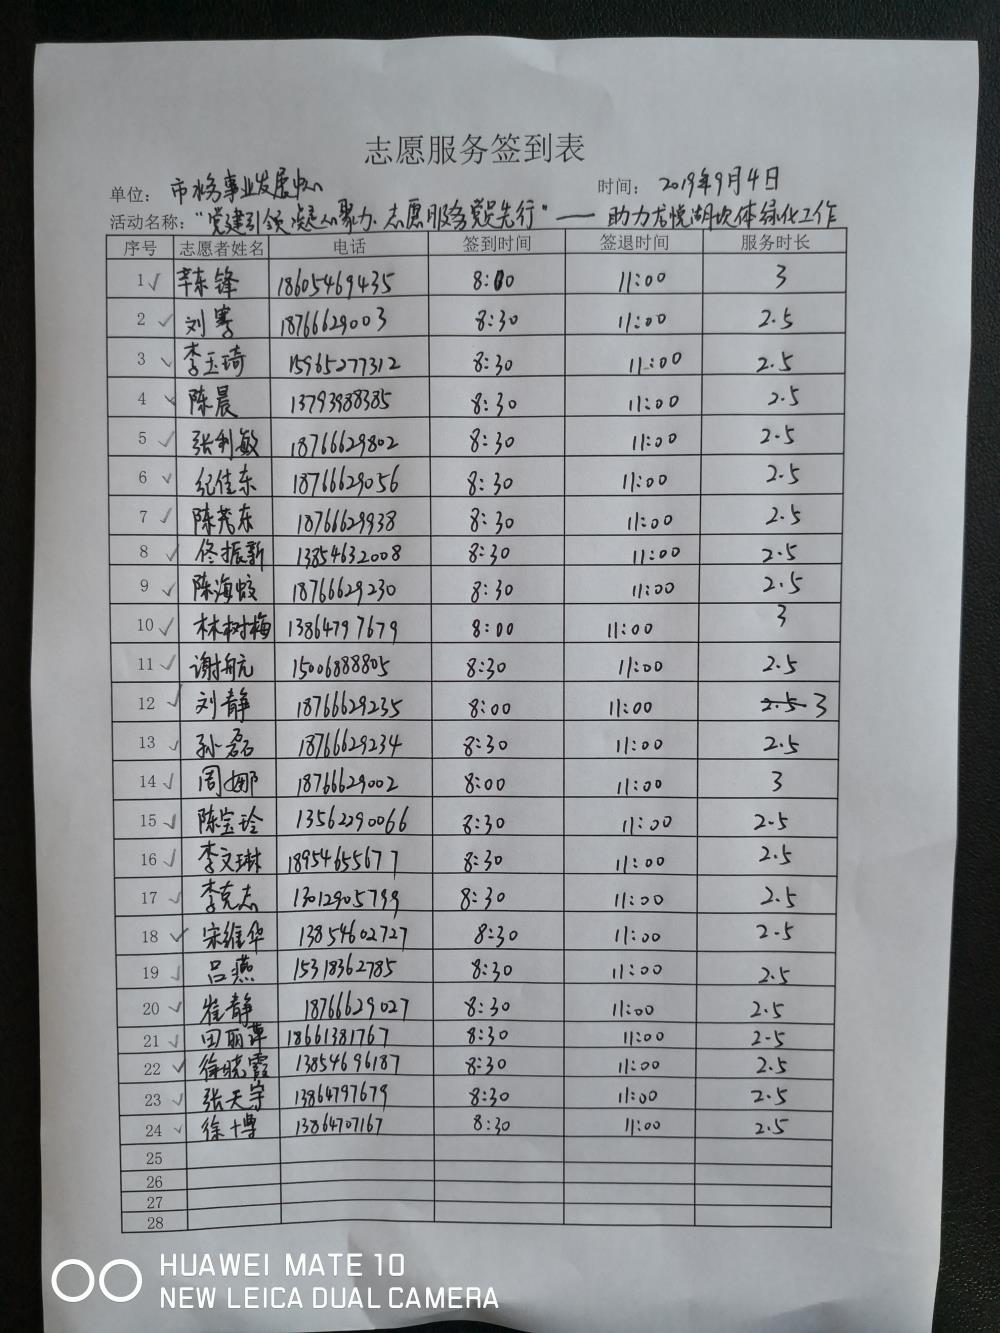 志愿服务签到表
单位: 市水务事业发展中心 时间: 2019年9月4日
活动名称: "党建引领凝心聚力、志愿服务党员先行" —— 助力龙悦湖坎体绿化工作
序号 志愿者姓名 电话 签到时间 签退时间 服务时长
1 ✓ 辛东锋 18605469435 8:00 11:00 3
2 ✓ 刘骞 18766629003 8:30 11:00 2.5
3 ✓ 李玉琦 15965277312 8:30 11:00 2.5
4 ✓ 陈晨 13793988385 8:30 11:00 2.5
5 ✓ 张利敏 18766629802 8:30 11:00 2.5
6 ✓ 纪佳东 18766629056 8:30 11:00 2.5
7 ✓ 陈尧东 18766629938 8:30 11:00 2.5
8 ✓ 佟振新 13854632008 8:30 11:00 2.5
9 ✓ 陈海蛟 18766629230 8:30 11:00 2.5
10 ✓ 林树梅 13864797679 8:00 11:00 3
11 ✓ 谢航 15006888805 8:30 11:00 2.5
12 ✓ 刘静 18766629235 8:00 11:00 2.5 3
13 ✓ 孙磊 18766629234 8:30 11:00 2.5
14 ✓ 周娜 18766629002 8:00 11:00 3
15 ✓ 陈宝玲 13562290066 8:30 11:00 2.5
16 ✓ 李文琳 18954655677 8:30 11:00 2.5
17 ✓ 李克志 13012905799 8:30 11:00 2.5
18 ✓ 宋维华 13854602727 8:30 11:00 2.5
19 ✓ 吕燕 15318362785 8:30 11:00 2.5
20 ✓ 崔静 18766629027 8:30 11:00 2.5
21 ✓ 田丽萍 18661381767 8:30 11:00 2.5
22 ✓ 徐晓霞 13854696187 8:30 11:00 2.5
23 ✓ 张天宇 13864797679 8:30 11:00 2.5
24 ✓ 徐博 13864707167 8:30 11:00 2.5
25
26
27
28
HUAWEI MATE 10
NEW LEICA DUAL CAMERA